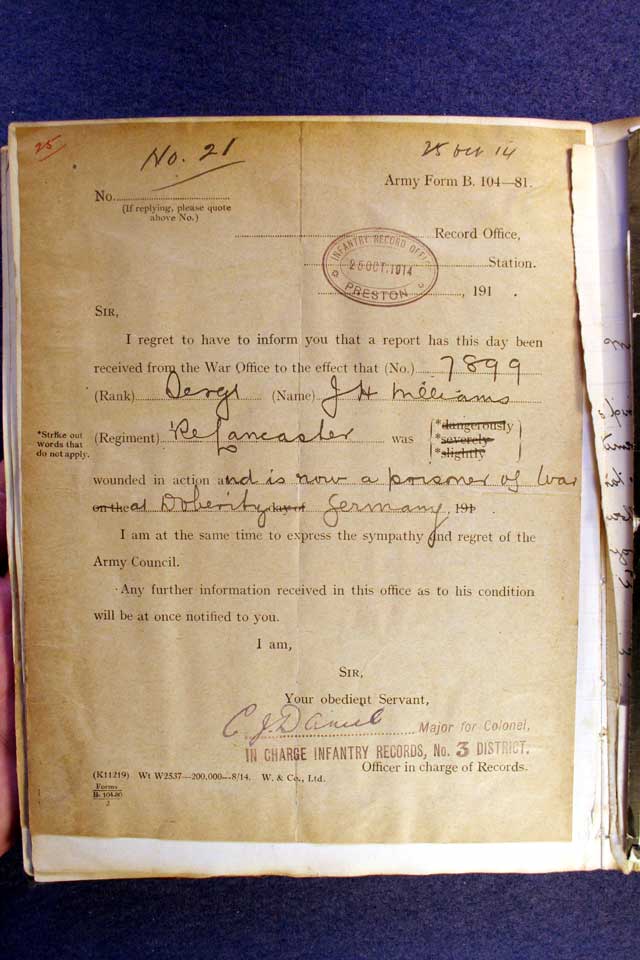 25
No. 21
25 Oct 14
Army Form B. 104—81.
No.
(If replying, please quote
above No.)
Record Office,
INFANTRY RECORD OFFICE
26 OCT. 1914
PRESTON
Station.
, 191 .
SIR,
I regret to have to inform you that a report has this day been
received from the War Office to the effect that (No.) 7899
(Rank) Sergt (Name) J H Williams
(Regiment) Rl Lancaster was
*dangerously
*severely
*slightly
*Strike out
words that
do not apply.
wounded in action and is now a prisoner of War
on the at Doberitz day of Germany, 191
I am at the same time to express the sympathy and regret of the
Army Council.
Any further information received in this office as to his condition
will be at once notified to you.
I am,
SIR,
Your obedient Servant,
C J Daniel Major for Colonel,
IN CHARGE INFANTRY RECORDS, No. 3 DISTRICT.
Officer in charge of Records.
(K11219) Wt W2537—200,000—8/14. W. & Co., Ltd.
Forms
B. 104-80
2